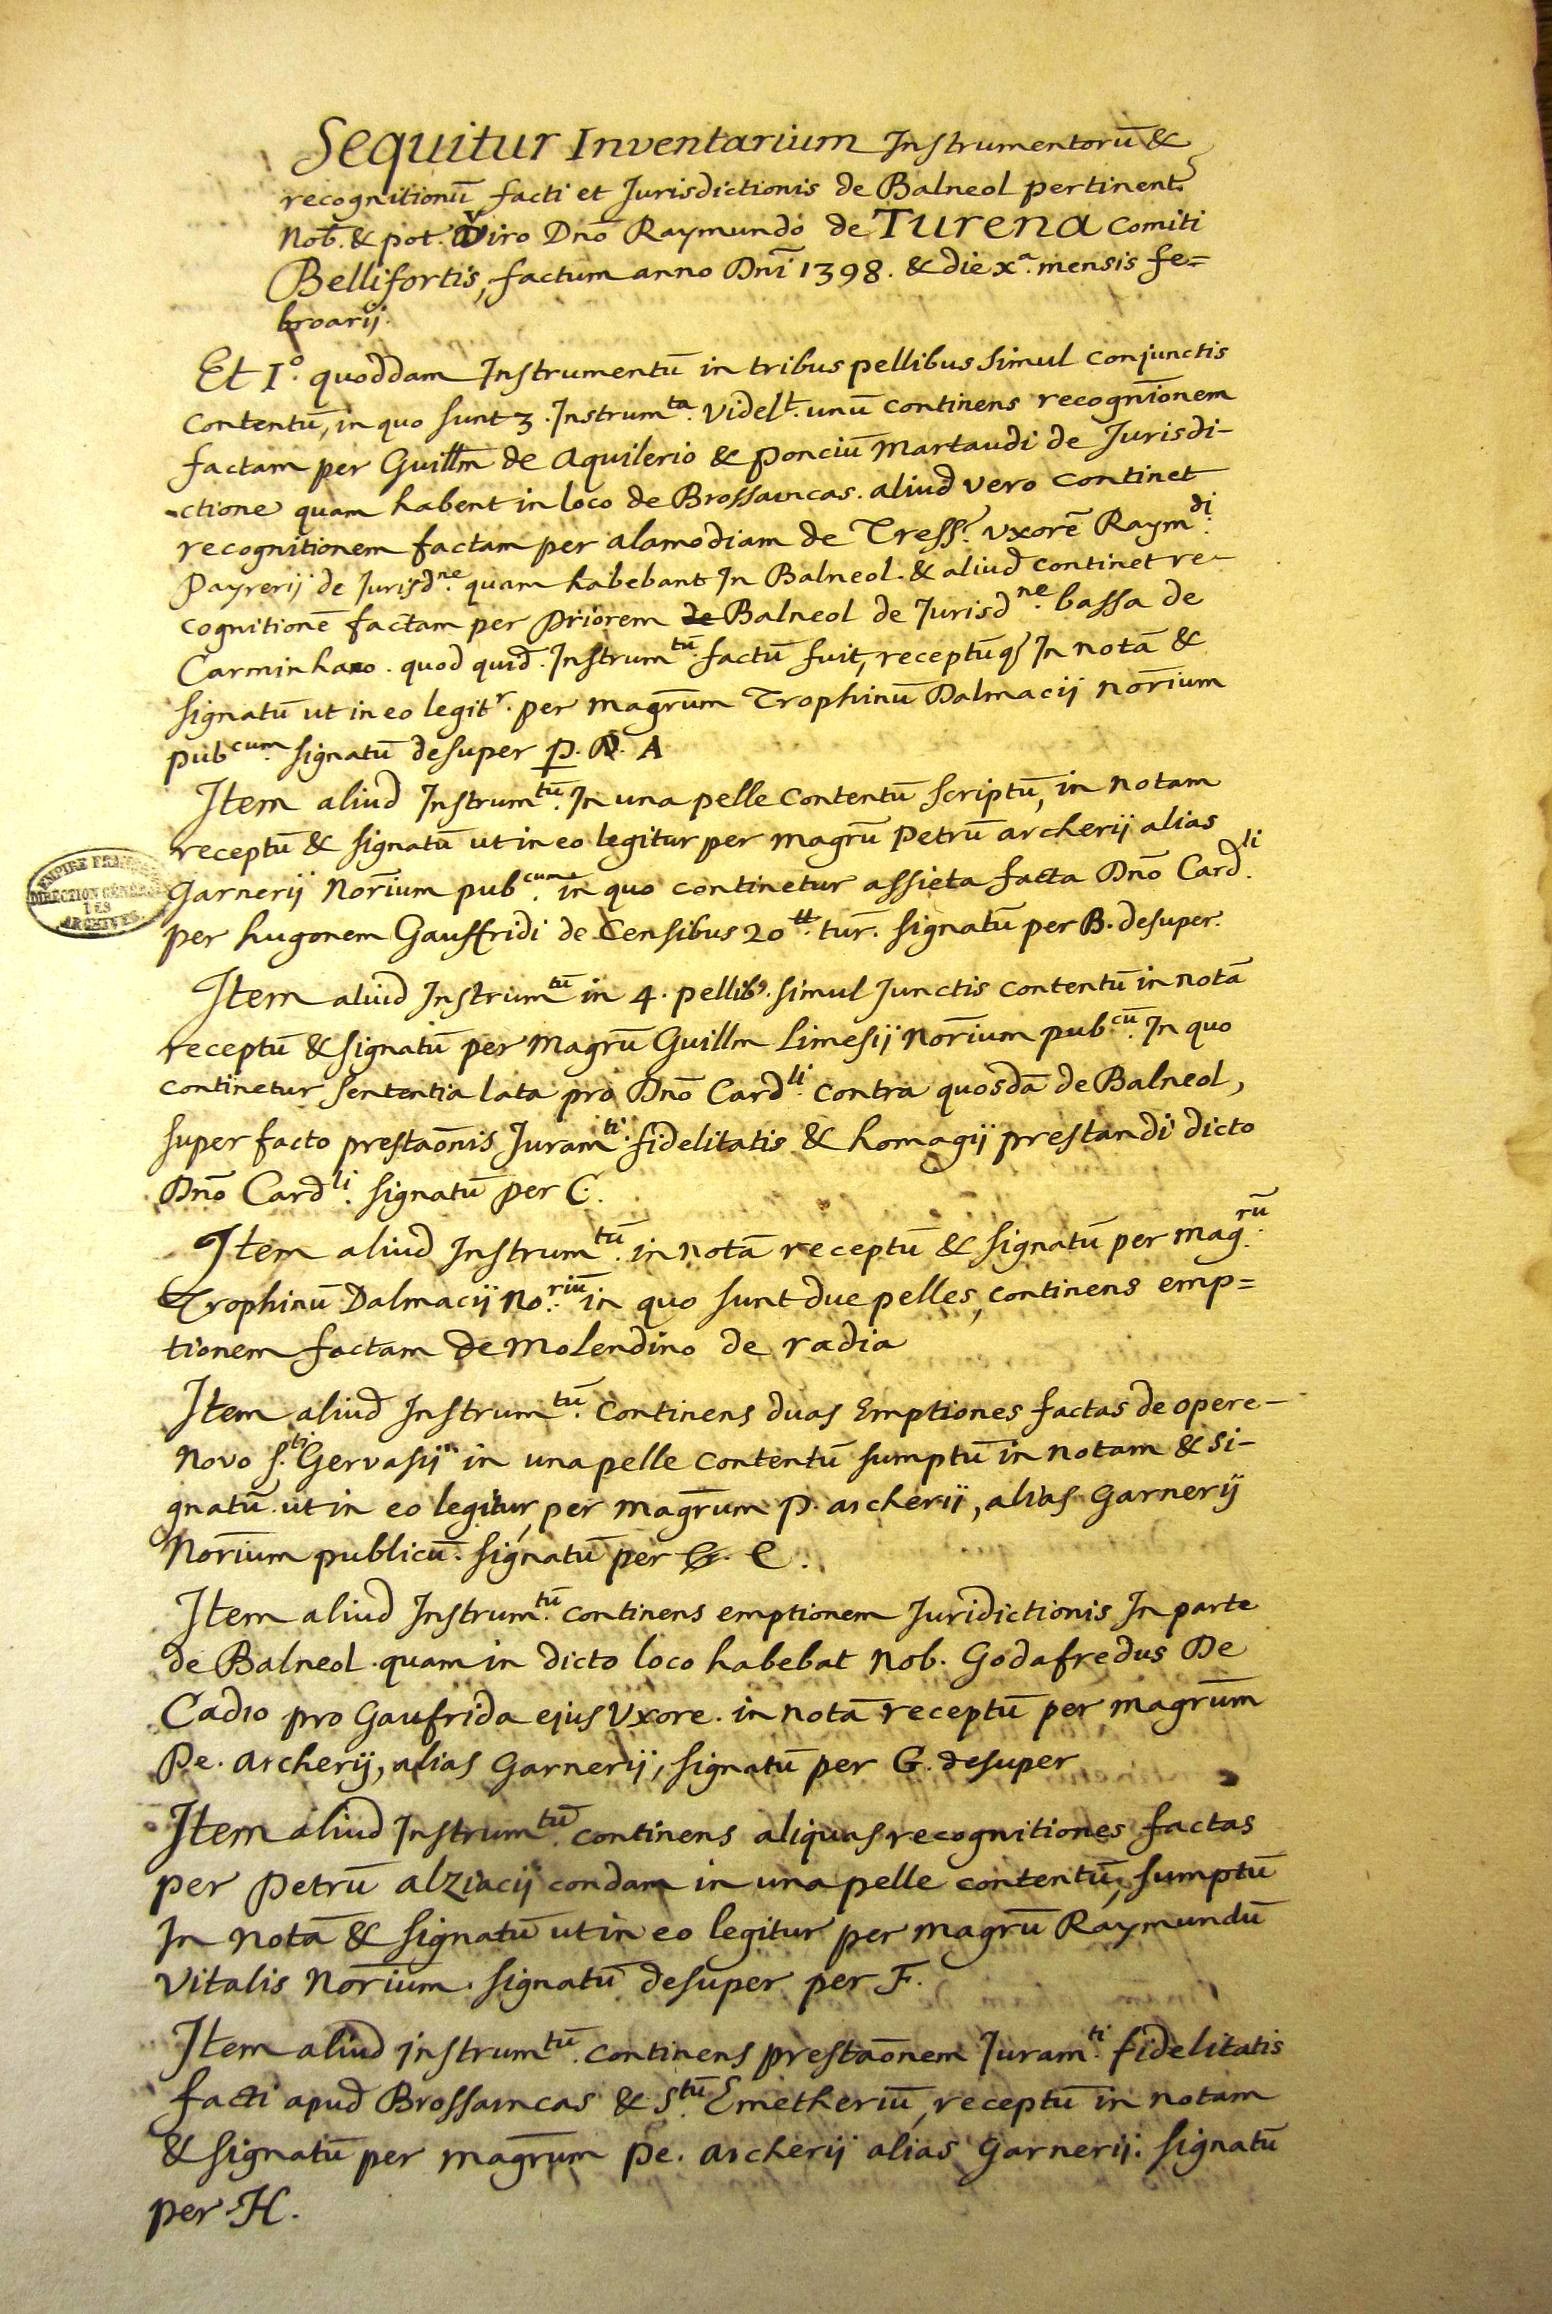 Sequitur Inventarium Instrumentorū &
recognitionū facti et Jurisdictionis de Balneol pertinent.
Nob. & pot. Viro Dnō Raymundo de Turena Comiti
Bellifortis, factum anno Dnī 1398. & die xª. mensis fe=
broarij.
Et Iº. quoddam Instrumentū in tribus pellibus simul conjunctis
contentū, in quo sunt 3. Instrumta. videlt. unū continens recognīonem
factam per Guillm̄ de Aquilerio & Ponciū Martaudi de Jurisdi-
-ctione quam habent in loco de Brossaincas. aliud vero continet
recognitionem factam per alamodiam de Tress. vxorē Raymdi.
Payrerij de Jurisdne. quam habebant In Balneol. & aliud continet re-
cognitionē factam per Priorem de Balneol de Jurisdne. bassa de
Carminhano. quod quid. Instrumtū. factū fuit, receptūq In notā &
signatū ut in eo legitr. per magr̄um Trophinū Dalmacij nor̄ium
pubcum. signatū desuper p. A
Item aliud Instrumtū. In una pelle contentū scriptū, in notam
receptū & signatū ut in eo legitur per magrū Petrū archerij alias
EMPIRE FRANÇAIS
DIRECTION GÉNÉRALE
DES
ARCHIVES
Garnerij Nor̄ium pubcum. in quo continetur assieta facta Dnō Cardli.
per hugonem Gauffridi de Censibus 20 tt. tur̄. signatū per B. desuper.
Item aliud Instrumtū in 4. pellib9. simul Junctis contentū in notā
receptū & signatū per Magrū Guillm Limesij Nor̄ium pubcū. In quo
continetur sententia lata pro Dnō Cardli. contra quosdā de Balneol,
super facto prestaōnis Juramti. fidelitatis & homagij prestandi dicto
Dnō Cardli. signatū per C.
Item aliud Instrumtū. in notā receptū & signatū per magrū.
Trophinū Dalmacij No.riū in quo sunt due pelles, continens emp=
tionem factam de Molendino de radia
Item aliud Instrumtū. Continens duas Emptiones factas de opere-
Novo s.ti Gervasij in una pelle contentū sumptū in notam & si-
gnatū ut in eo legitur, per magr̄um P. archerij, alias Garnerij
Nor̄ium publicū. signatū per G. E.
Item aliud Instrumtū. continens emptionem Juridictionis In parte
de Balneol. quam in dicto loco habebat Nob. Godafredus De
Cadio pro Gaufrida ejus Vxore. in notā receptū per magr̄um
Pe. Archerij, alias Garnerij, signatū per G. desuper
Item aliud Instrumtū. continens aliquas recognitiones factas
per Petrū alziacij condam in una pelle contentū, sumptū
In notā & signatū ut in eo legitur per magrū Raymundū
Vitalis Nor̄ium. signatū desuper per F.
Item aliud instrumtū. continens prestaōnem Juramti. fidelitatis
facti apud Brossaincas & S.tū Emetheriū, receptū in notam
& signatū per magr̄um Pe. Archerij alias Garnerij. signatū
per H.